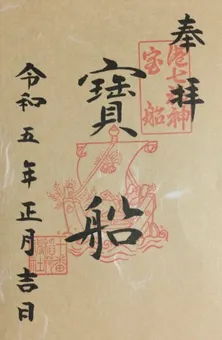 奉拝
港七福神
宝船
寳船
令和五年正月吉日